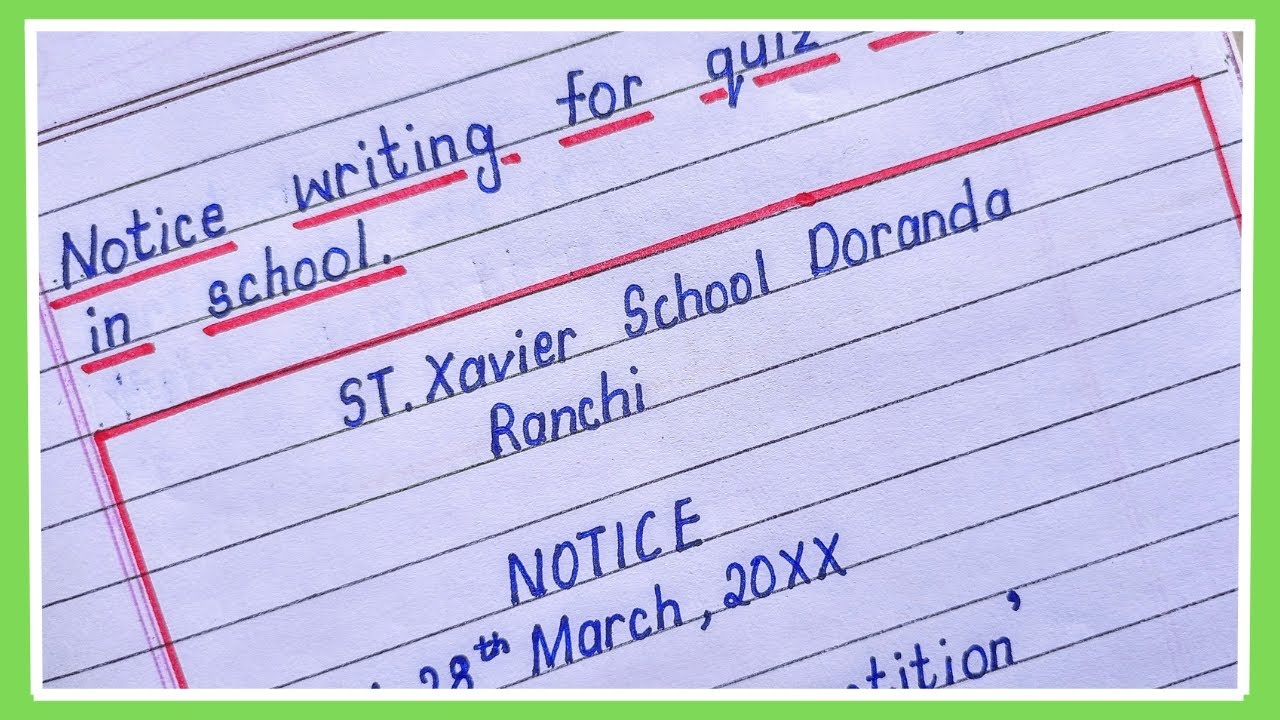 Notice writing for quiz
in school.
ST. Xavier School Doranda
Ranchi
NOTICE
28th March, 20XX